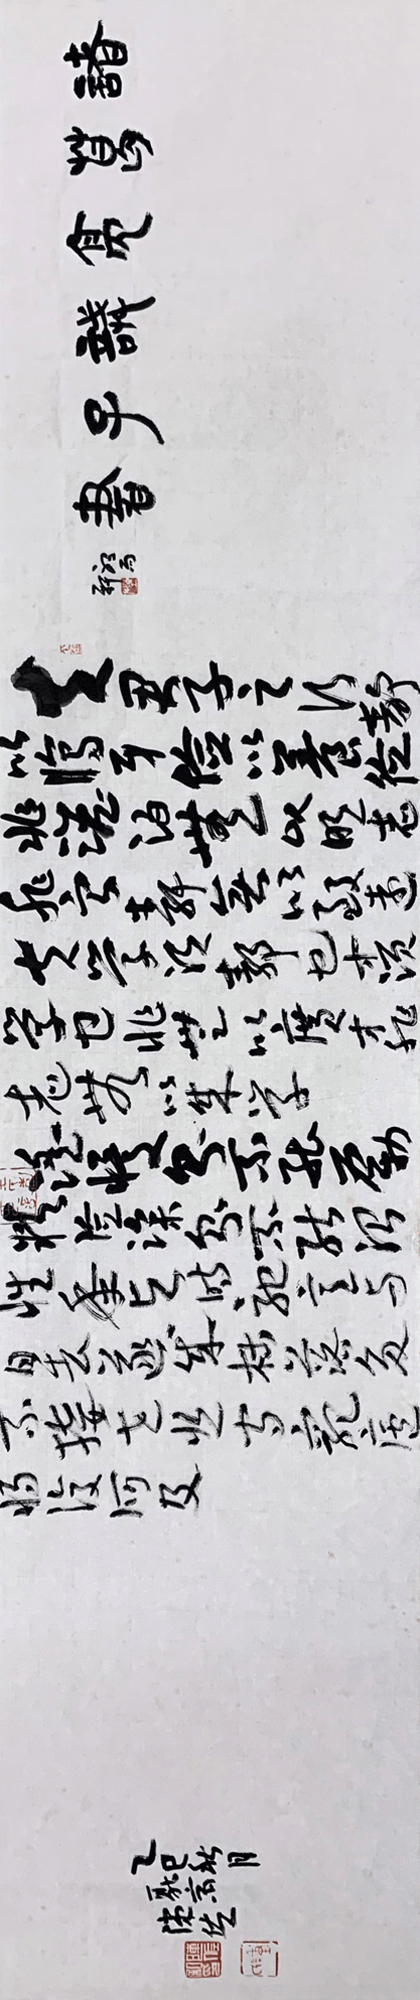 諸葛亮誡子書
夫君子之行靜
以脩身儉以養德
非澹泊無以明志
非寧靜無以致遠
夫學須靜也才須
學也非學以廣才非
志無以成學
淫慢則不能勵
精險躁則不能治
性年与時馳意与
日去遂成枯落多
不接世悲守窮廬
將復何及
乙巳秋月